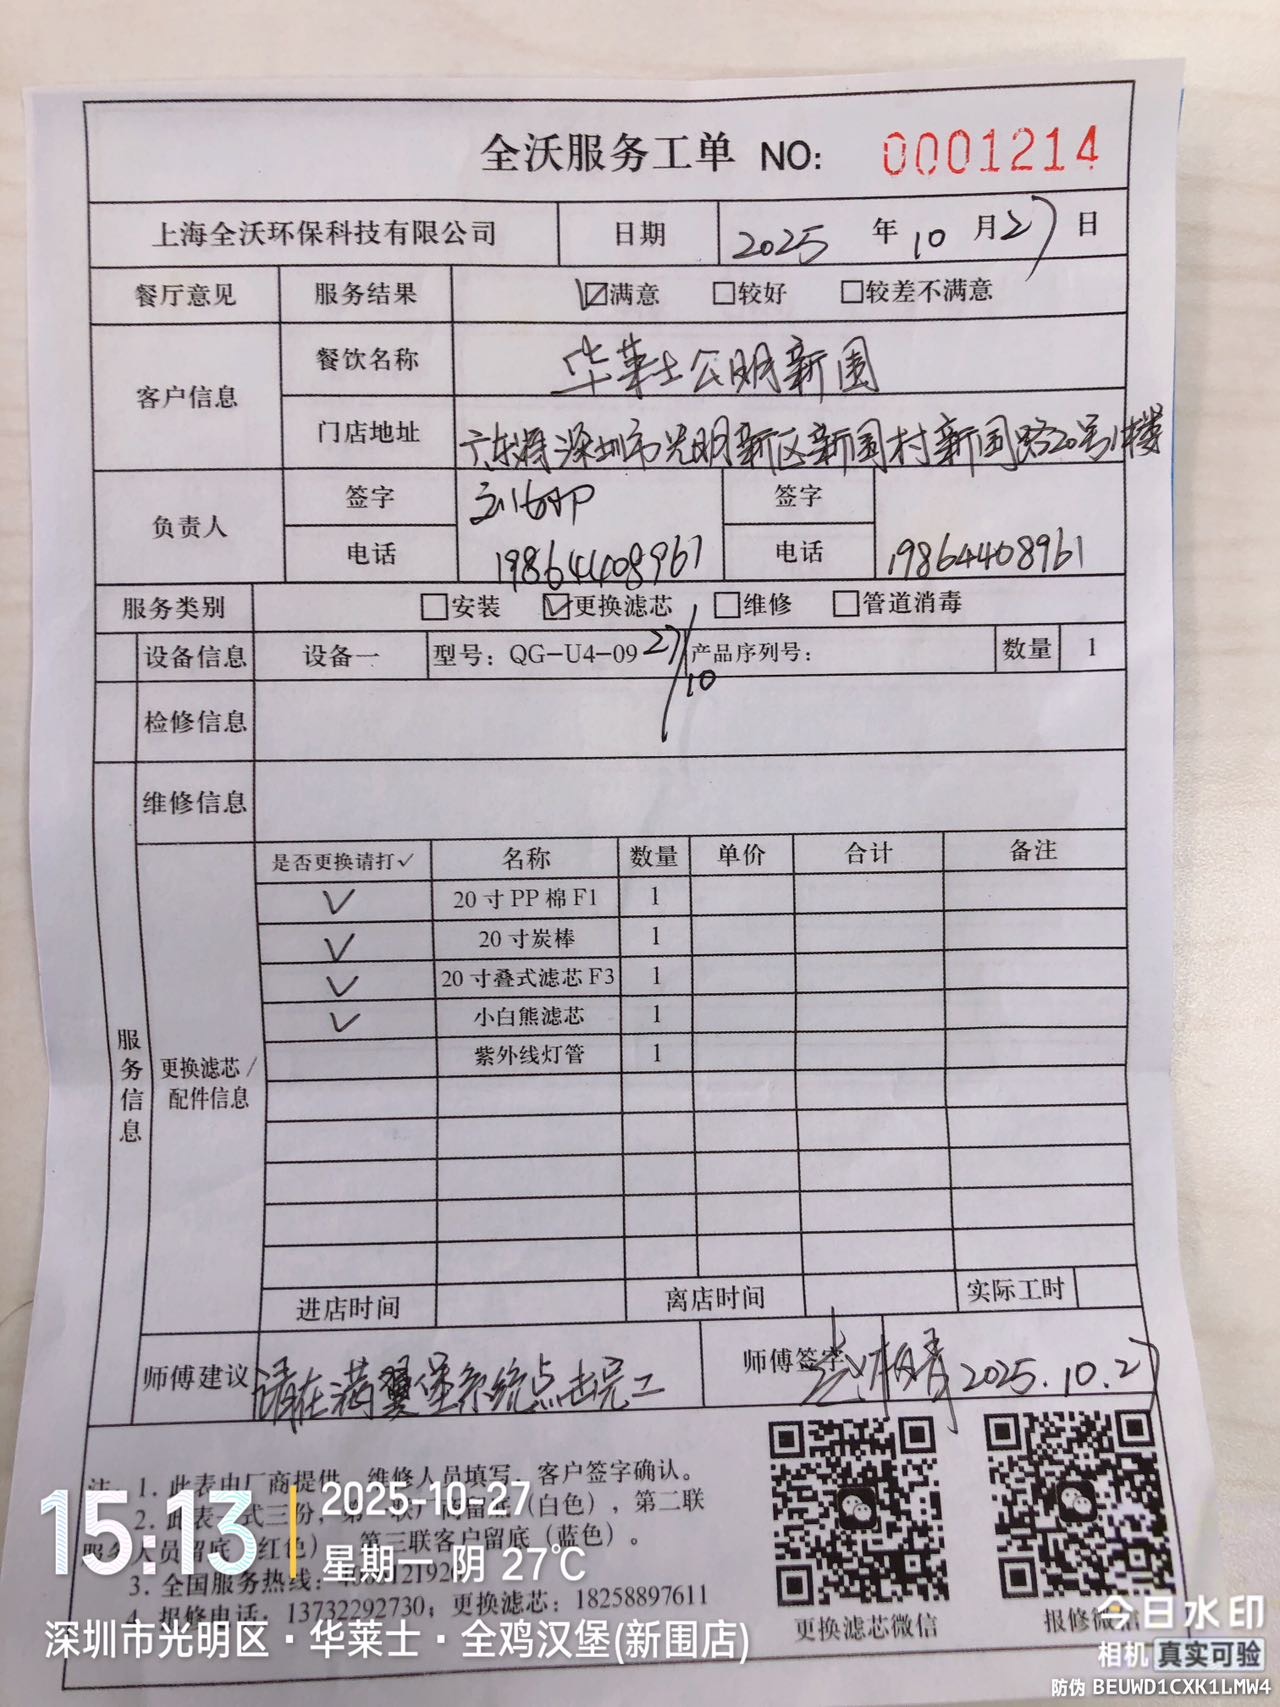 全沃服务工单 NO: 0001214
上海全沃环保科技有限公司 日期 2025 年 10 月 27 日
餐厅意见 服务结果 ☑满意 □较好 □较差不满意
客户信息 餐饮名称 华莱士公明新围
门店地址 广东省深圳市光明新区新围村新围路20号1楼
负责人 签字 签字
电话 19864408961 电话 19864408961
服务类别 □安装 ☑更换滤芯 □维修 □管道消毒
设备信息 设备一 型号：QG-U4-09 27/10 产品序列号： 数量 1
检修信息
维修信息
服务信息
更换滤芯/配件信息
是否更换请打✓ 名称 数量 单价 合计 备注
✓ 20寸PP棉F1 1
✓ 20寸炭棒 1
✓ 20寸叠式滤芯F3 1
✓ 小白熊滤芯 1
紫外线灯管 1
进店时间 离店时间 实际工时
师傅建议 请在满翼堡系统点击完工 师傅签字 2025.10.27
注 1. 此表由厂商提供，维修人员填写，客户签字确认。
2. 此表一式三份，第一联厂商留底（白色），第二联
服务人员留底（红色），第三联客户留底（蓝色）。
3. 全国服务热线：
4. 报修电话：13732292730；更换滤芯：18258897611
更换滤芯微信 报修微信
15:13 2025-10-27
星期一 阴 27℃
深圳市光明区·华莱士·全鸡汉堡(新围店)
今日水印
相机 真实可验
防伪 BEUWD1CXK1LMW4